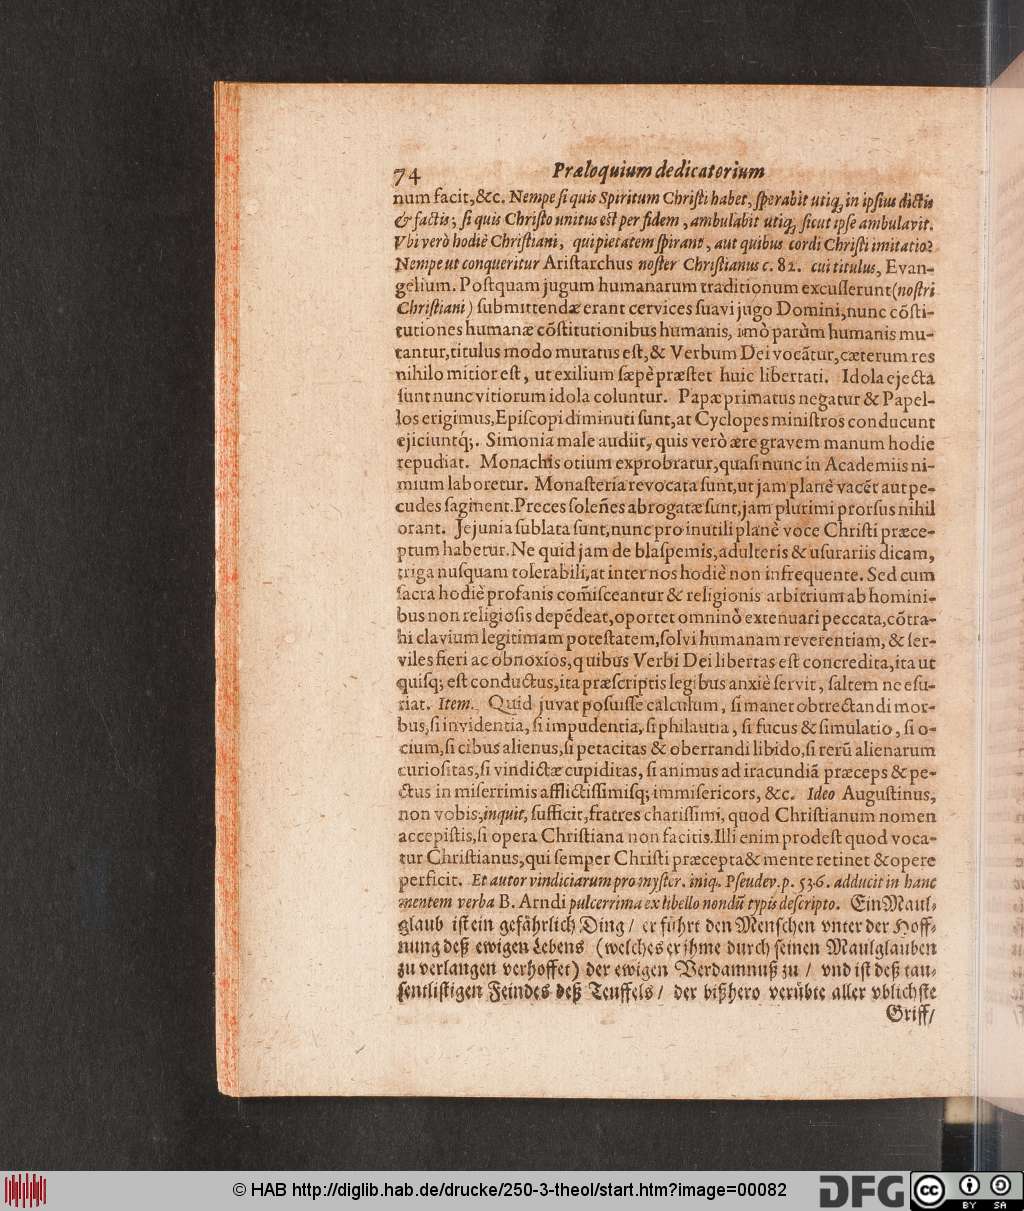 74 Præloquium dedicatorium
num facit, &c. Nempe si quis Spiritum Christi habet, sperabit utiq; in ipsius dictis
& factis; si quis Christo unitus est per fidem, ambulabit utiq; sicut ipse ambulavit.
Vbi verò hodiè Christiani, qui pietatem spirant, aut quibus cordi Christi imitatio?
Nempe ut conqueritur Aristarchus noster Christianus c. 82. cui titulus, Evan-
gelium. Postquam jugum humanarum traditionum excusserunt (nostri
Christiani) submittendæ erant cervices suavi jugo Domini; nunc cõsti-
tutiones humanæ cõstitutionibus humanis, imò parùm humanis mu-
tantur, titulus modo mutatus est, & Verbum Dei vocãtur, cæterum res
nihilo mitior est, ut exilium sæpè præstet huic libertati. Idola ejecta
sunt nunc vitiorum idola coluntur. Papæ primatus negatur & Papel-
los erigimus, Episcopi diminuti sunt, at Cyclopes ministros conducunt
ejiciuntq́;. Simonia male audiit, quis verò ære gravem manum hodie
repudiat. Monachis otium exprobratur, quasi nunc in Academiis ni-
mium laboretur. Monasteria revocata sunt, ut jam planè vacẽt aut pe-
cudes saginent. Preces soleñes abrogatæ sunt, jam plurimi prorsus nihil
orant. Jejunia sublata sunt, nunc pro inutili planè voce Christi præce-
ptum habetur. Ne quid jam de blaspemis, adulteris & usurariis dicam,
triga nusquam tolerabili, at inter nos hodiè non infrequente. Sed cum
sacra hodiè profanis com̃isceantur & religionis arbitrium ab homini-
bus non religiosis depẽdeat, oportet omninò extenuari peccata, cõtra-
hi clavium legitimam potestatem, solvi humanam reverentiam, & ser-
viles fieri ac obnoxios, quibus Verbi Dei libertas est concredita, ita ut
quisq; est conductus, ita præscriptis legibus anxiè servit, saltem ne esu-
riat. Item. Quid juvat posuisse calculum, si manet obtrectandi mor-
bus, si invidentia, si impudentia, si philautia, si fucus & simulatio, si o-
cium, si cibus alienus, si petacitas & oberrandi libido, si rerũ alienarum
curiositas, si vindictæ cupiditas, si animus ad iracundiã præceps & pe-
ctus in miserrimis afflictissimisq; immisericors, &c. Ideo Augustinus,
non vobis, inquit, sufficit, fratres charissimi, quod Christianum nomen
accepistis, si opera Christiana non facitis. Illi enim prodest quod voca-
tur Christianus, qui semper Christi præcepta & mente retinet & opere
perficit. Et autor vindiciarum pro myster. iniq. Pseudev. p. 536. adducit in hanc
mentem verba B. Arndi pulcerrima ex libello nondũ typis descripto. Ein Maul-
glaub ist ein gefährlich Ding / er führt den Menschen vnter der Hoff-
nung deß ewigen Lebens (welches er ihme durch seinen Maulglauben
zu verlangen verhoffet) der ewigen Verdamnuß zu / vnd ist deß tau-
sentlistigen Feindes deß Teuffels / der bißhero verübte aller vblichste
Griff /
© HAB http://diglib.hab.de/drucke/250-3-theol/start.htm?image=00082
DFG
cc BY SA